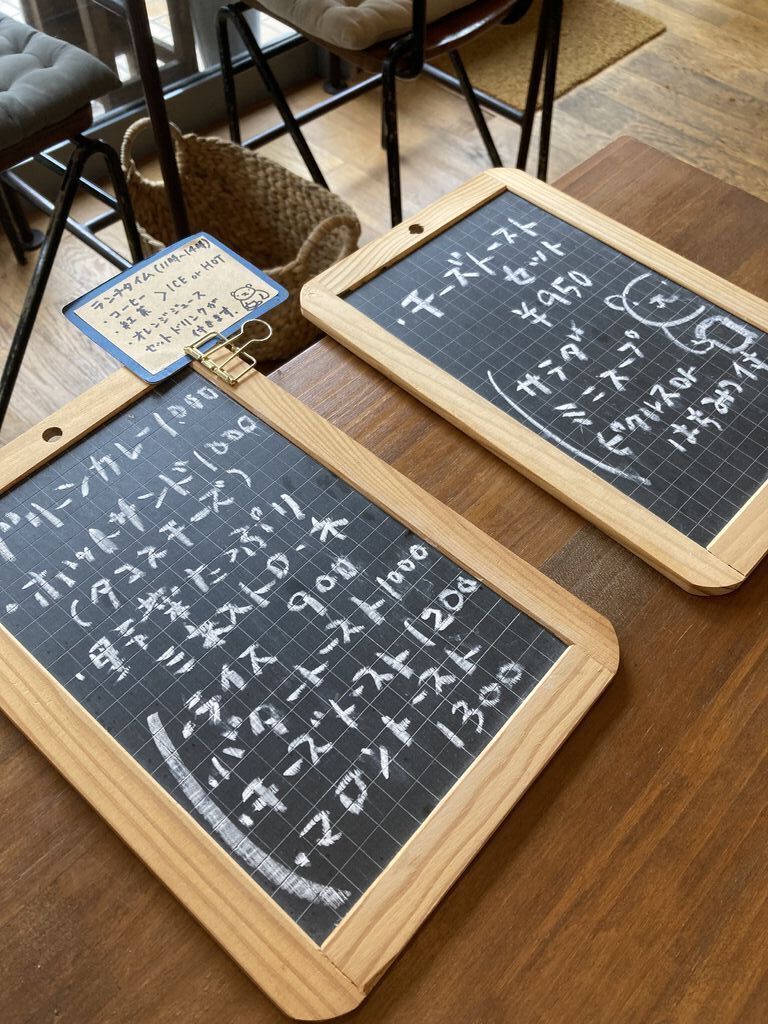 ランチタイム(11時〜14時)
・コーヒー
紅茶 > ICE or HOT
・オレンジジュース
セットドリンクが
付きます。
カレー
・ホットサンド 1000
(タコスチーズ)
・野菜たっぷり
ミネストローネ
ライス 900
・バタートースト 1000
・チーズトースト 1200
・マロントースト
1300
・チーズトースト
セット
¥950
サラダ
ミニスープ
ピクルスor
はちみつ付